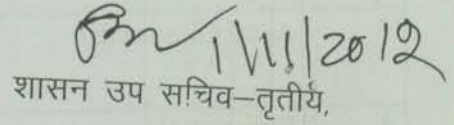 1/11/2012
शासन उप सचिव–तृतीय,